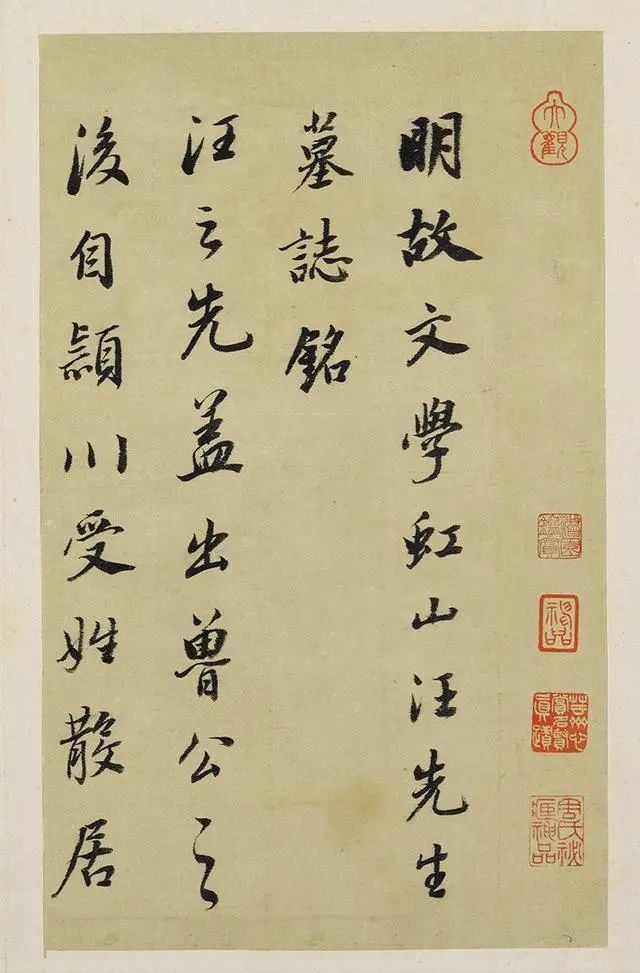 大觀
神品
明故文學虹山汪先生
墓誌銘
汪之先盖出魯公之
後自頴川受姓散居